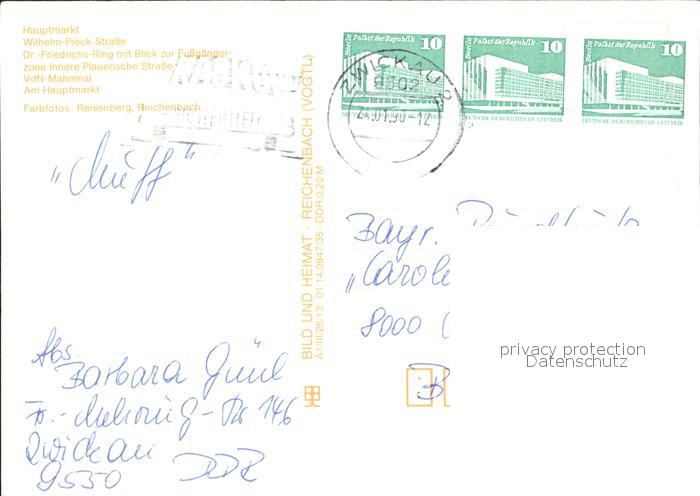 Hauptmarkt
Wilhelm-Pieck-Straße
Dr.-Friedrichs-Ring mit Blick zur Fußgänger-
zone Innere Plauensche Straße
VdN-Mahnmal
Am Hauptmarkt
Farbfotos: Reisenberg, Reichenbach
BILD UND HEIMAT · REICHENBACH (VOGTL)
A1/III/26/13 01 14 0847/35 · DDR 0,20 M
Berlin Palast der Republik 10
DEUTSCHE DEMOKRATISCHE REPUBLIK
Berlin Palast der Republik 10
DEUTSCHE DEMOKRATISCHE REPUBLIK
Berlin Palast der Republik 10
DEUTSCHE DEMOKRATISCHE REPUBLIK
ZWICKAU
24.01.90-12
SICHERHEIT
Bayr.
8000
B
Abs.
Barbara
146
Zwickau
9550 DDR
privacy protection
Datenschutz